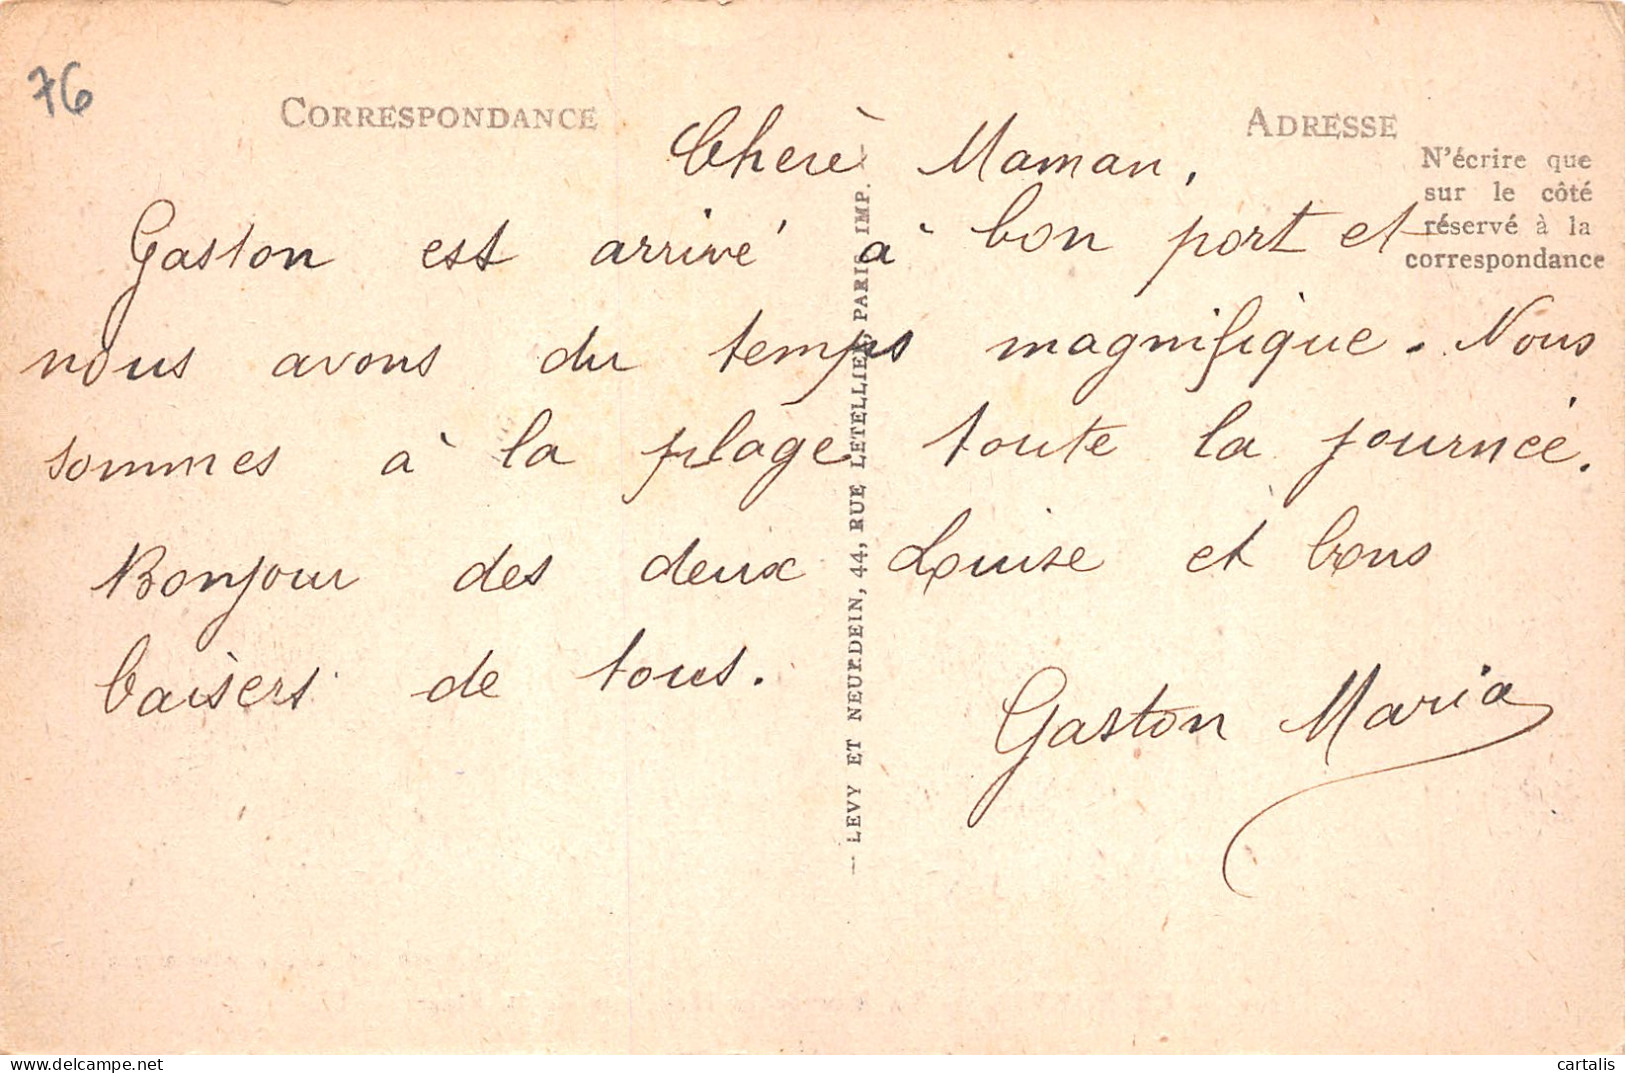 76
CORRESPONDANCE
ADRESSE
N'écrire que
sur le côté
réservé à la
correspondance
Chère Maman,
Gaston est arrivé à bon port et
nous avons du temps magnifique. Nous
sommes à la plage toute la journée.
Bonjour des deux Louise et bons
baisers de tous.
Gaston Maria
— LEVY ET NEURDEIN, 44, RUE LETELLIER, PARIS IMP. —
cartalis